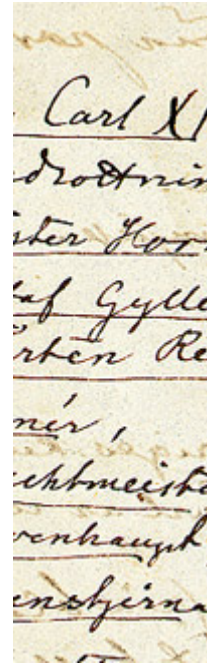 Carl XI
drottnin
ster Hor
af Gylle
rten Re
nér,
chtmeiste
wenhaupt
enstjerna